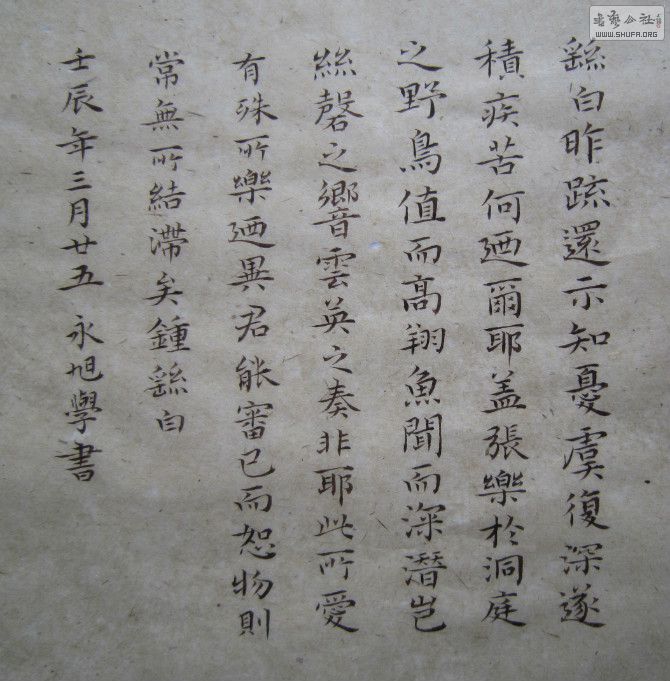 繇白昨疏還示知憂虞復深遂
積疾苦何迺爾耶盖張樂於洞庭
之野鳥值而高翔魚聞而深潛豈
絲磬之響雲英之奏非耶此所愛
有殊所樂迺異君能審己而恕物則
常無所結滯矣鍾繇白
壬辰年三月廿五 永旭學書
書藝公社
WWW.SHUFA.ORG